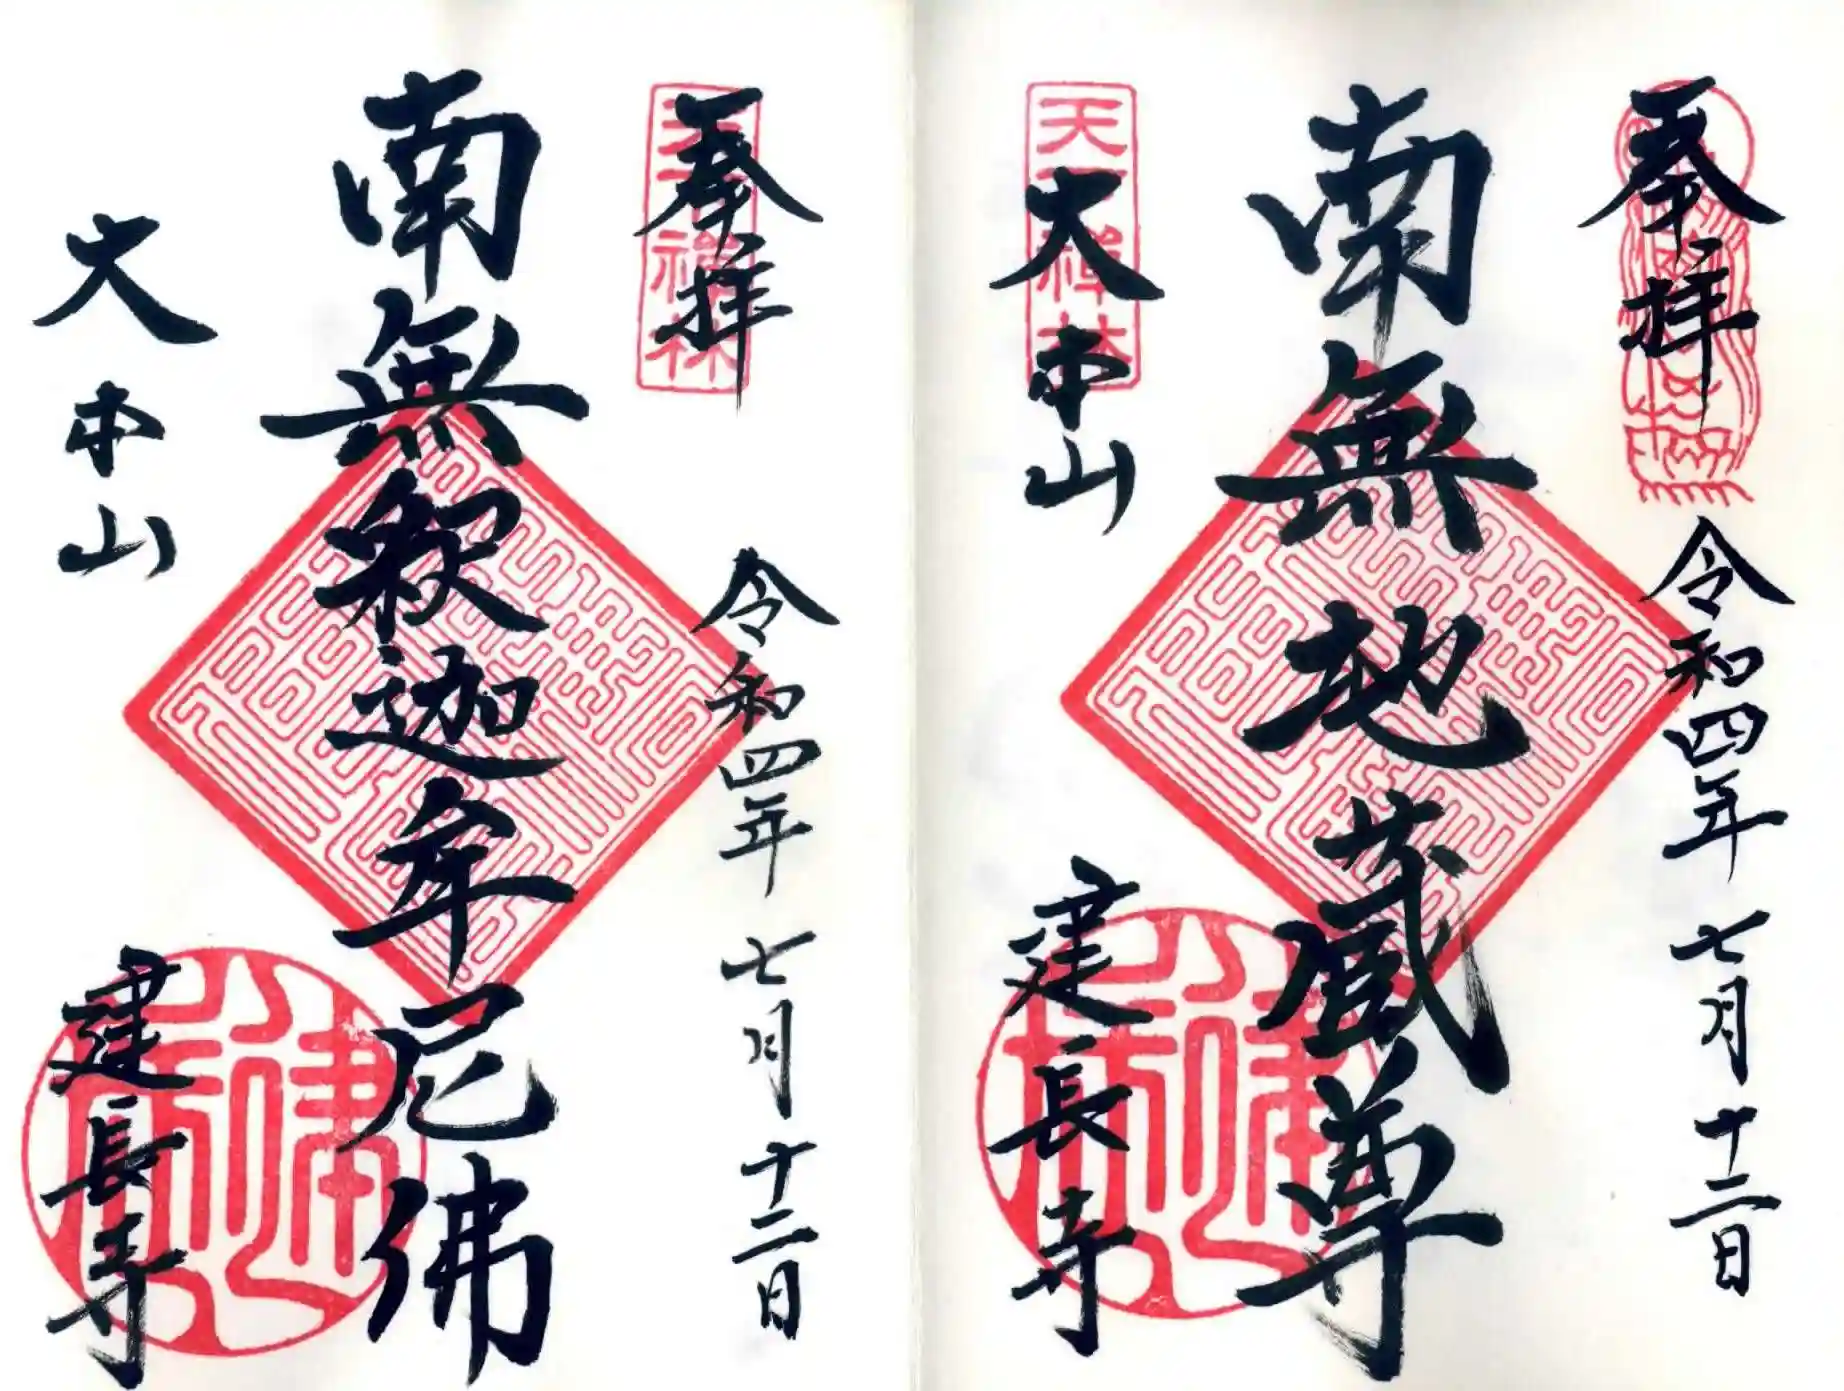 奉拝
令和四年七月十二日
南無地蔵尊
天下禅林
大本山
建長寺
奉拝
天下禅林
令和四年七月十二日
南無釈迦牟尼佛
大本山
建長寺